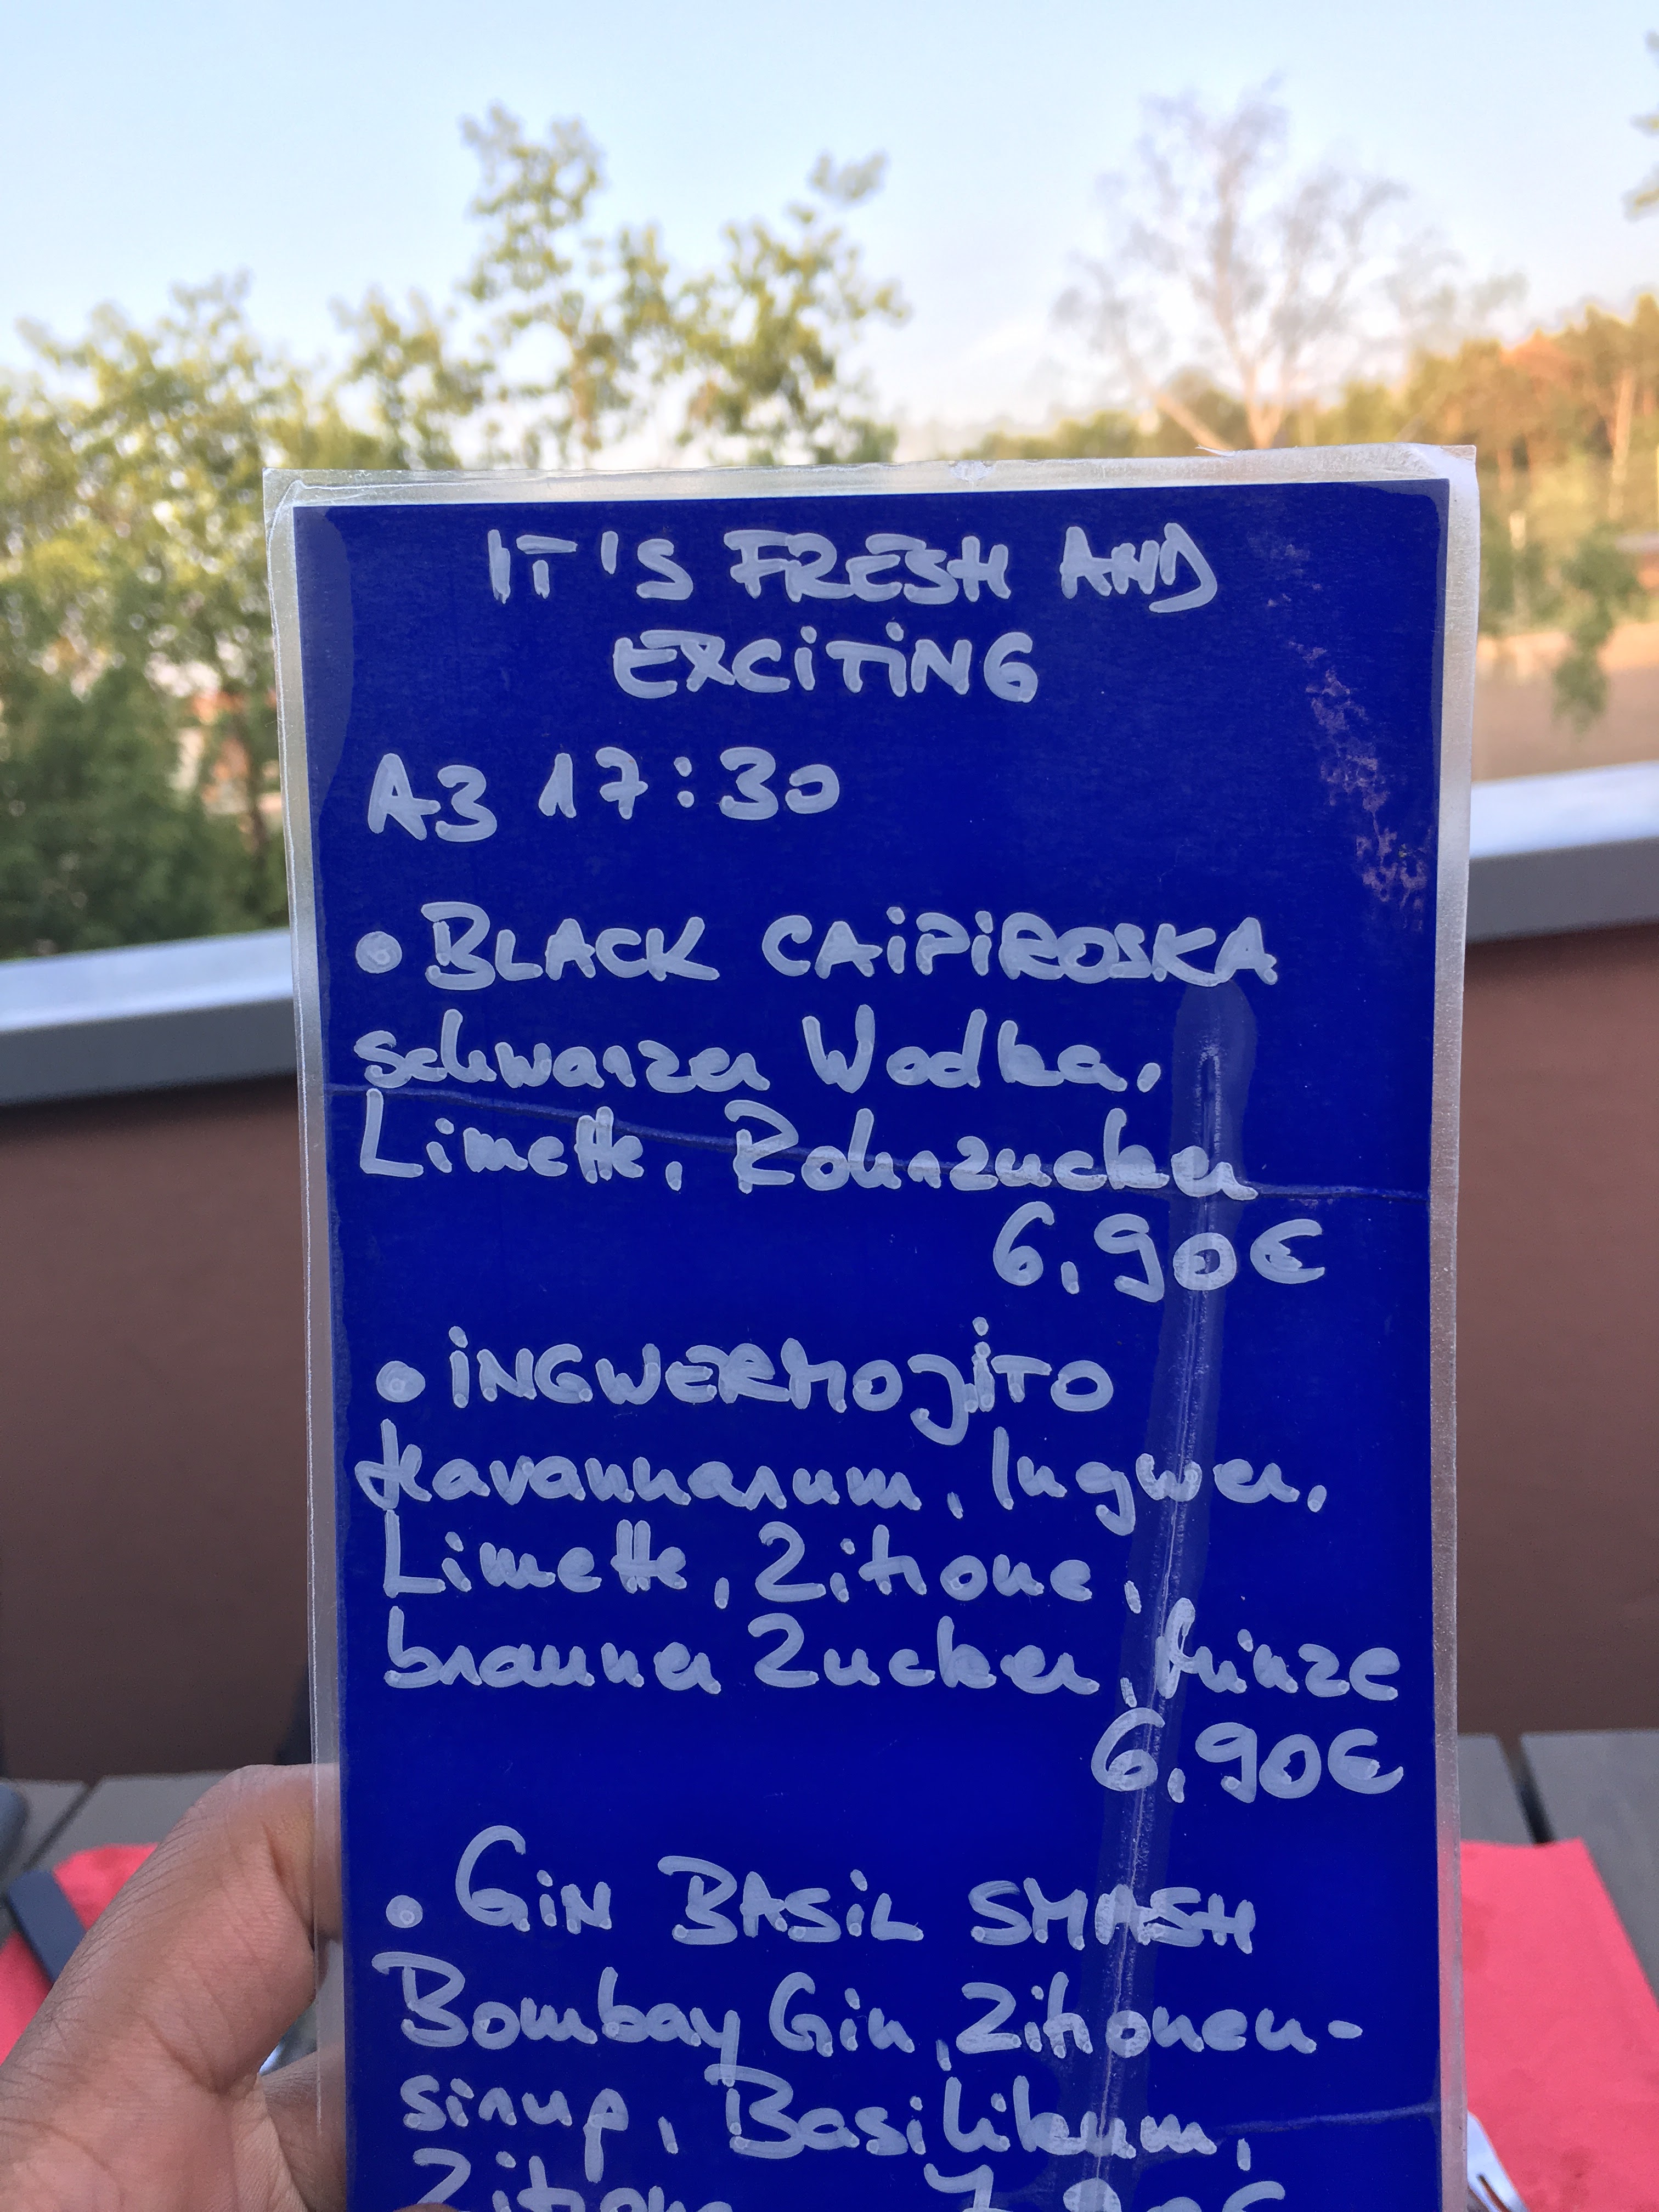 IT'S FRESH AND
EXCITING
A3 17:30
• BLACK CAIPIROSKA
schwarzer Wodka,
Limette, Rohrzucker
6,90€
• INGWERMOJITO
Havannarum, Ingwer,
Limette, Zitrone,
brauner Zucker, Minze
6,90€
• GIN BASIL SMASH
Bombay Gin, Zitronen-
sirup, Basilikum,
Zitrone 7,90€